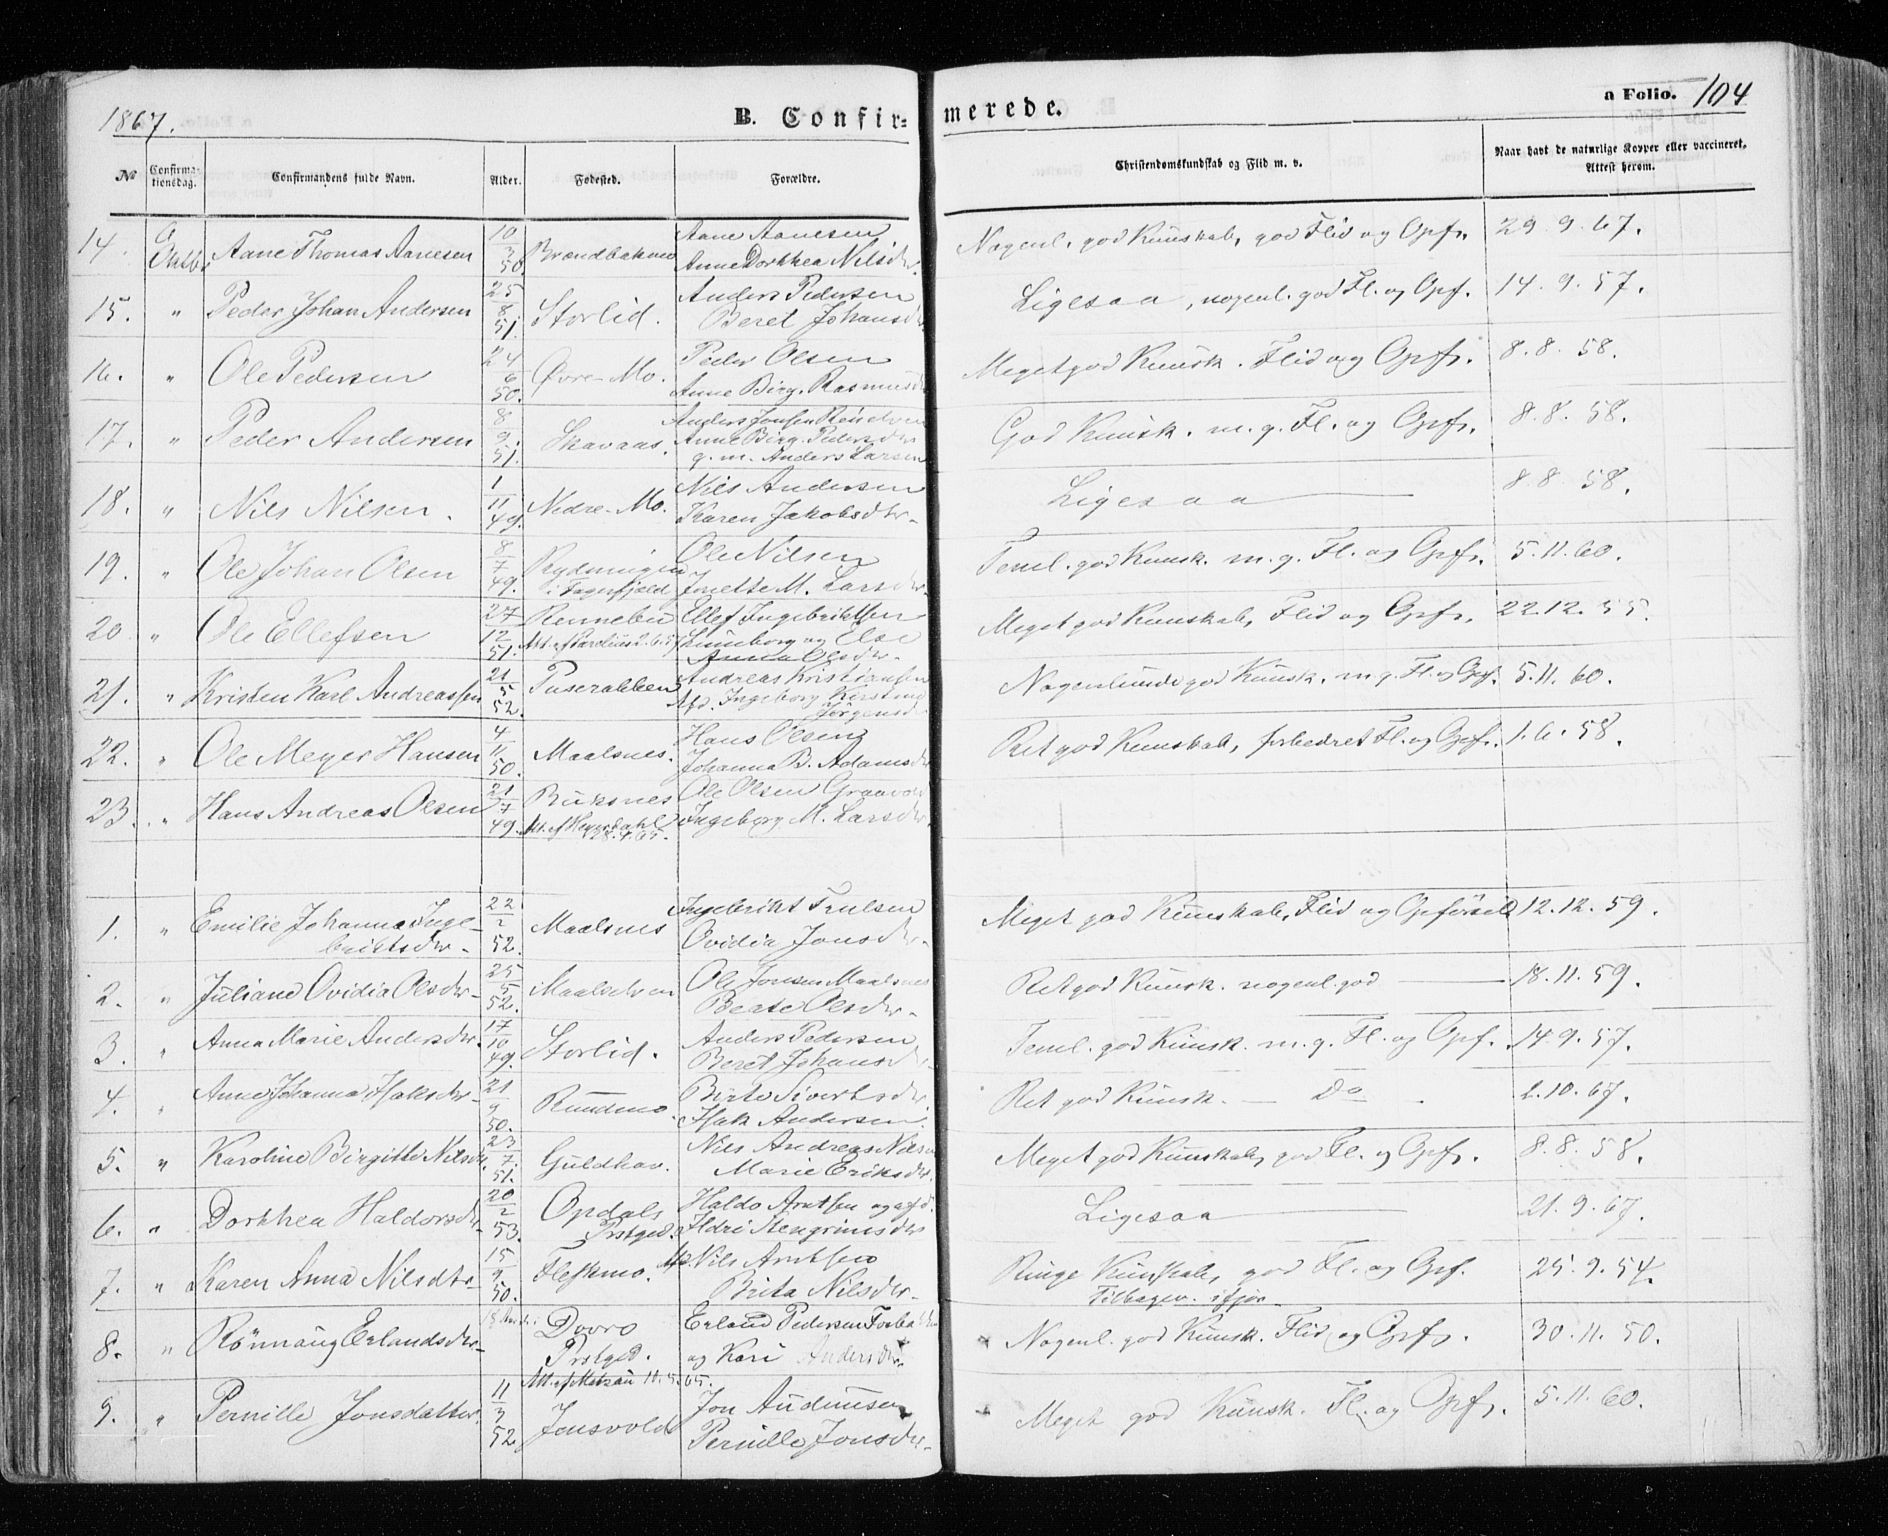 1867. B. Confir= merede. a Folio. 104
No Confirma-tionsdag. Confirmandens fulde Navn. Alder. Fødested. Forældre. Christendomskundskab og Flid m. v. Naar havt de naturlige Kopper eller vaccineret, Attest herom.
14. 6 Aane Thomas Aanesen 10/3 50. Aane Aanesen Anne Dorthea Nilsdtr. Nogenl. god Kunskab, god Flid og Opfr. 29.9.67.
15. " Peder Johan Andersen 25/8 51. Storlid. Anders Pedersen Beret Johansdtr. Ligesaa, nogenl. god Fl. og Opf. 14.9.57.
16. " Ole Pedersen 24/6 50. Øvre-Mo. Peder Olsen Anne Birg. Rasmusd Meget god Kunsk. Flid og Opfr. 8.8.58.
17. " Peder Andersen 8/9 51. Skavaas. Anders Jonsen Anne Birg. Pedersdtr g.m. Anders Larsen God Kunsk. m.g. Fl. og Opfr. 8.8.58.
18. " Nils Nilsen. 1/11 49. Nedre-Mo. Nils Andersen Karen Jakobsdtr- Ligesaa 8.8.58.
19. " Ole Johan Olsen 8/7 49. Rydningen i Fagerfjeld Ole Nilsen Jonette M. Larsdtr. Teml. god Kunsk. m.g. Fl. og Opfr. 5.11.60.
20 " Ole Ellefsen 27/12 51. Rennebu Ellef Ingebriktsen og Else Anna Olsdtr- Meget god Kunskab, Flid og Opfr. 22.12.55.
21. " Kristen Karl Andreassen 21/5 52. Andreas Kristiansen Afd. Ingeborg Kirstine Jørgensd Nogenlunde god Kunsk. m.g. Fl. og Opf. 5.11.60.
22. " Ole Meyer Hansen 4/11 50. Maalsnes. Hans Olsen Johanna B. Adamsdtr Ret god Kunskab, forbedret Fl. og Opfr. 1.6.58.
23. " Hans Andreas Olsen 21/7 49. Buksnes Att. af Heyerdahl Ole Olsen Ingeborg M. Larsdtr.
1. " Emilie Johanna Inge-
briktsdtr- 22/2 52. Maalsnes Ingebrikt Ovidia Jonsdtr- Meget god Kunskab, Flid og Opførsel 12.12.59.
2. " Juliane Ovidia Olsdtr- 25/5 52. Ole Jonsen Maalsnes Beate Olsdtr- Ret god Kunsk. nogenl. god 18.11.59.
3. " Anna Marie Andersdtr. 17/10 49. Storlid. Anders Pedersen Beret Johansdtr- Teml. god Kunsk. m.g. Fl. og Opf. 14.9.57.
4. " Anne Johanna Isaksdtr- 21/9 50. Rundmo. Birte Sivertsdtr. Isak Andersen. Ret god Kunsk. - Do 1.10.67.
5. " Karoline Birgitte Nilsdtr. 23/7 51. Guldhav. Nils Andreas Nilsen Marie Eriksdtr. Meget god Kunskab, god Fl. og Opfr. 8.8.58.
6. " Dorthea Haldorsdtr- 20/2 53. Opdals Prstgjd. Haldo Arntsen og Ildri Stengrimsdtr Ligesaa 21.9.67.
7. " Karen Anna Nilsdtr- 15/9 50. Fleskmo. Nils Arntsen Brita Nilsdtr- Ringe Kunskab, god Fl. og Opf. Tilbagev. ifjor- 25.9.54.
8. " Rönnaug Erlandsdtr- Dovre Prstgjd. Erland Pedersen og Kari Andersdtr- Nogenl. god Kunsk. Flid og Opfr. 30.11.50.
9. " Pernille Jonsdatter. 11/3 52 Jonsvold Jon Audunsen Pernille Jonsdtr- Meget god Kunsk. Fl. og Opfr. 5.11.60.